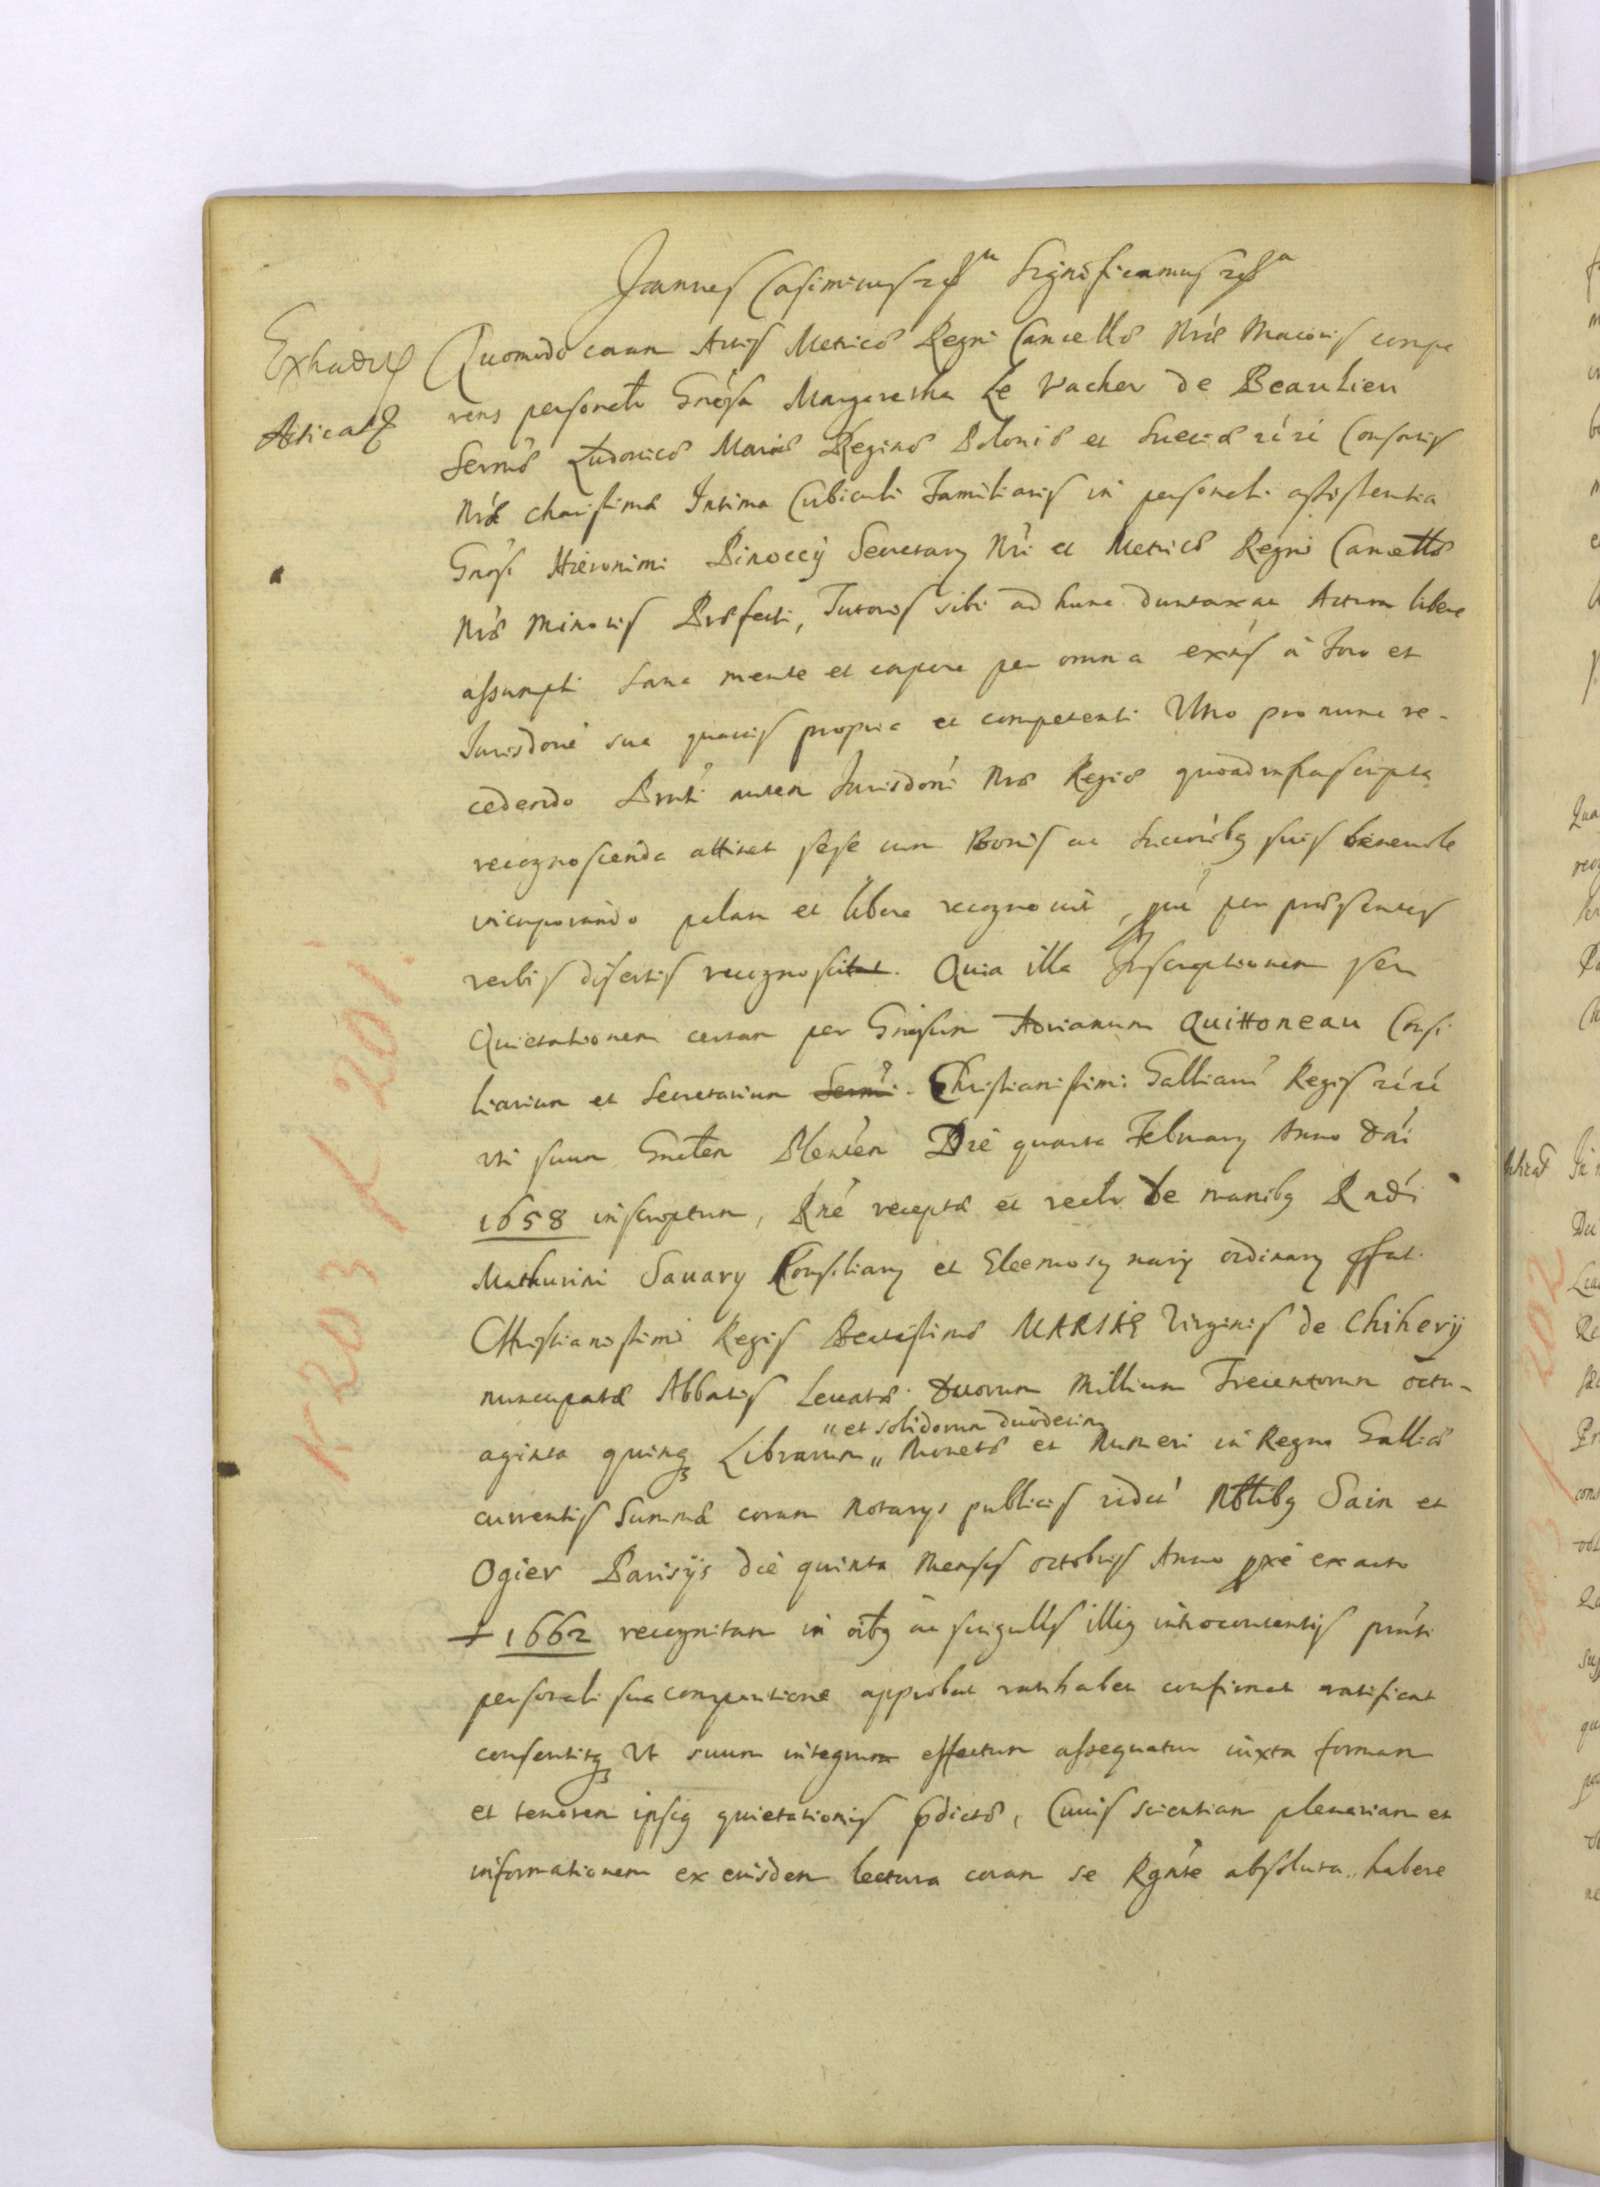 Joannes Casimirus Significamus
Quomodo coram Actis Metricæ Regni Cancellæ Nræ Maioris compa
Exhadit
rens personetr Gnosa Margaretha Le Vacher de Beaulieu
Articatq
Sermæ Ludovicæ Mariæ Reginæ Poloniæ et Sueciæ ríri Consortis
Nræ charissimæ Intima Cubiculi Familiaris in personeli assistentia
Gnosi Hieronimi Pinoccÿ Secretarÿ Nri et Metricæ Regni Cancellæ
Nræ Minoris Præfecti, Tutoris sibi ad hunc duntaxat Actum libere
assumpti sana mente et corpore per omnia exns à Foro et
Jurisdone sua quavis propria et competenti Uno pro nunc re-
cedendo Prnti autem Jurisdoni Nræ Regiæ quoad infrascripta
recognoscenda attinet sese cum Bonis ac Succribg suis benevole
incorporando palam et libere recognovit, prnt per præsentes
verbis disertis recognoscit. Quia illa Inscriptionem seu
Quietationem certam per Gnosum Adrianum Quittoneau Consi
liarium et Secretarium Sermi Christianissimi Galliarú Regis ríri
uti suum Gnrlem Plenten Die quarta February Anno Dni
1658 inscriptum, Rne receptæ et recte De manibg Rndi
Mathurini Savary Consiliarÿ et Eleemosynarÿ ordinarÿ effat.
Christianissimi Regis Beatissimæ MARIAE Virginis de Chiherÿ
nuncupatæ Abbatis Levatæ Duorum Millium Trecentorum octu-
„et solidorum duodecim
aginta quinq Librarum „ Monetæ et Numeri in Regno Galliæ
currentis Summæ coram Notarys publicis videl Nblibg Sain et
Ogier Parisÿs die quinta Mensis octobris Anno pxe exacto
+ 1662 recognitam in oibg ac singulis illig introcontentis prnti
personali sua comparitione approbat ratihabet confirmat ratificat
consentitq Ut suum integrum effectum assequatur iuxta formam
et tenorem ipsig quietationis pdictæ, Cuius scientiam plenariam et
informationem ex eiusdem lectura coram se Rgnte absoluta habere
K 203 f 201.